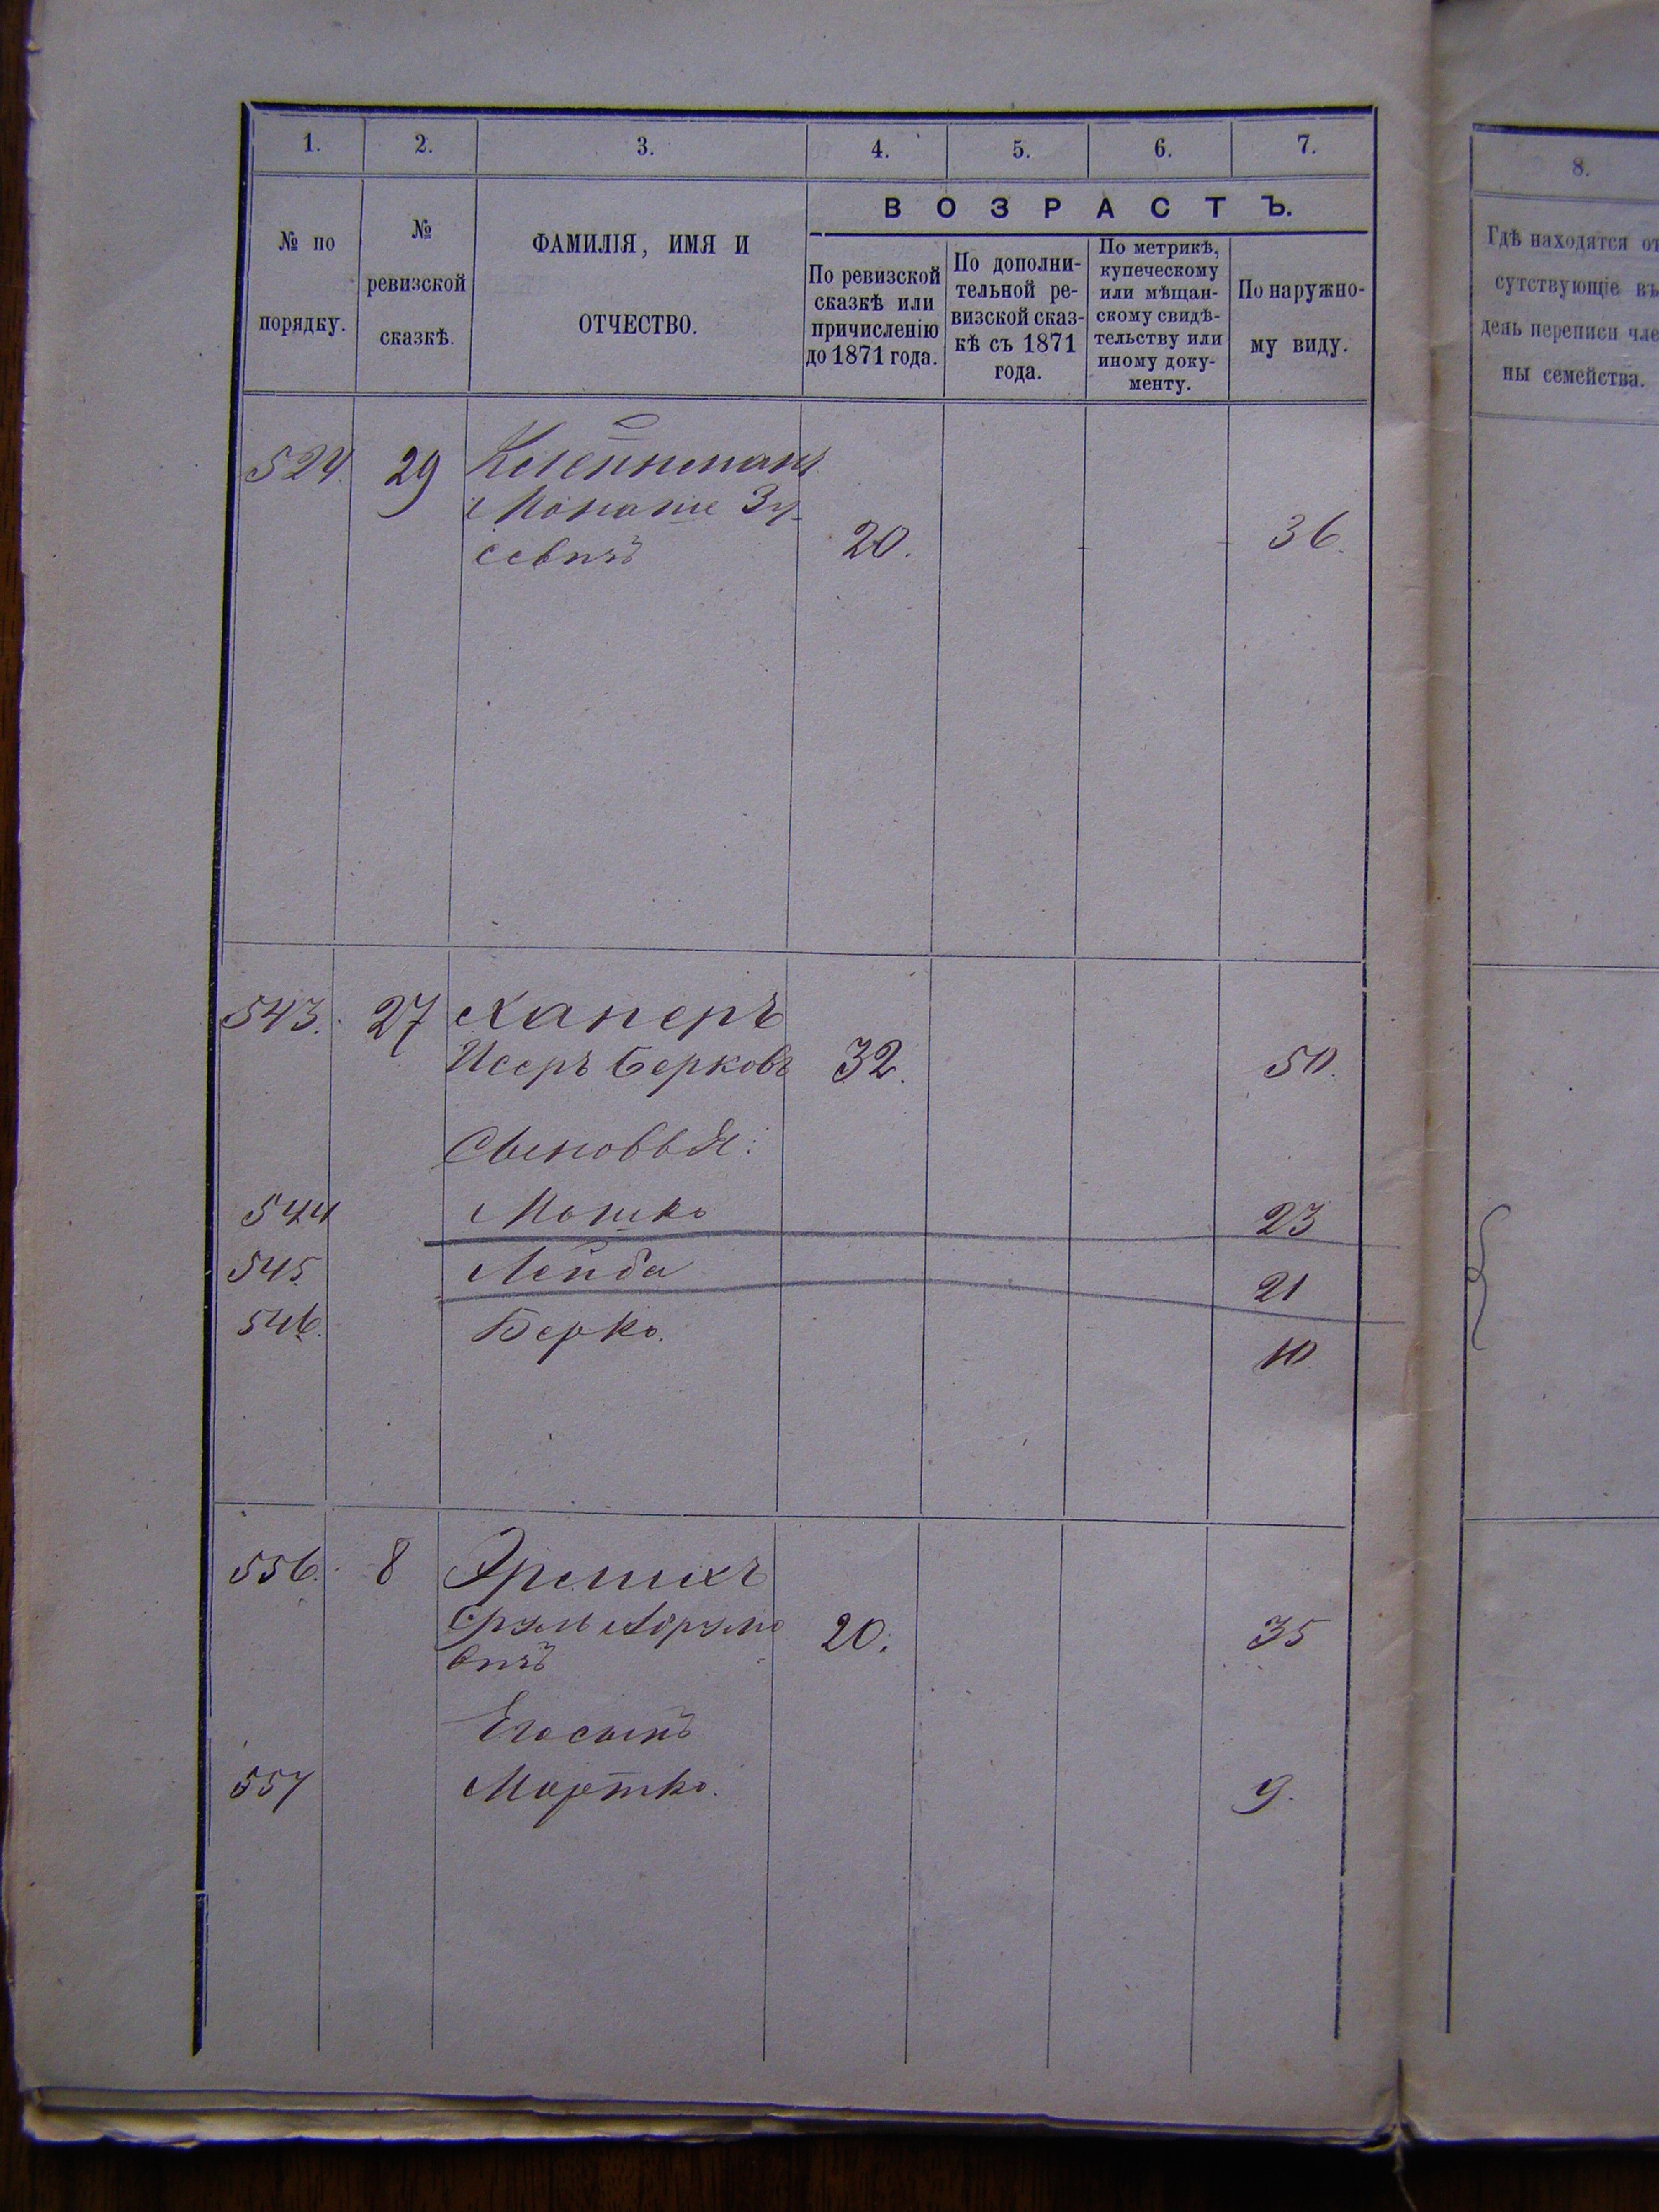 1. 2. 3. 4. 5. 6. 7.
№ по
порядку.
№
ревизской
сказкѣ.
ФАМИЛІЯ, ИМЯ И
ОТЧЕСТВО.
ВОЗРАСТЪ.
По ревизской
сказкѣ или
причисленію
до 1871 года.
По дополни-
тельной ре-
визской сказ-
кѣ съ 1871
года.
По метрикѣ,
купеческому
или мѣщан-
скому свидѣ-
тельству или
иному доку-
менту.
По наружно-
му виду.
524. 29 Клейнманъ
Монаше Зу-
севичъ 20. 36.
543. 27 Каперъ
Исеръ Берковъ 32. 50.
Сыновья:
544 Мошко 23
545. Лейба 21
546. Берко. 10.
556. 8 Эрлихъ
Сруль 20. 35
вичъ
Его сынъ
557 Мортко. 9.
8.
Гдѣ находятся от
сутствующіе въ
день переписи чле
ны семейства.